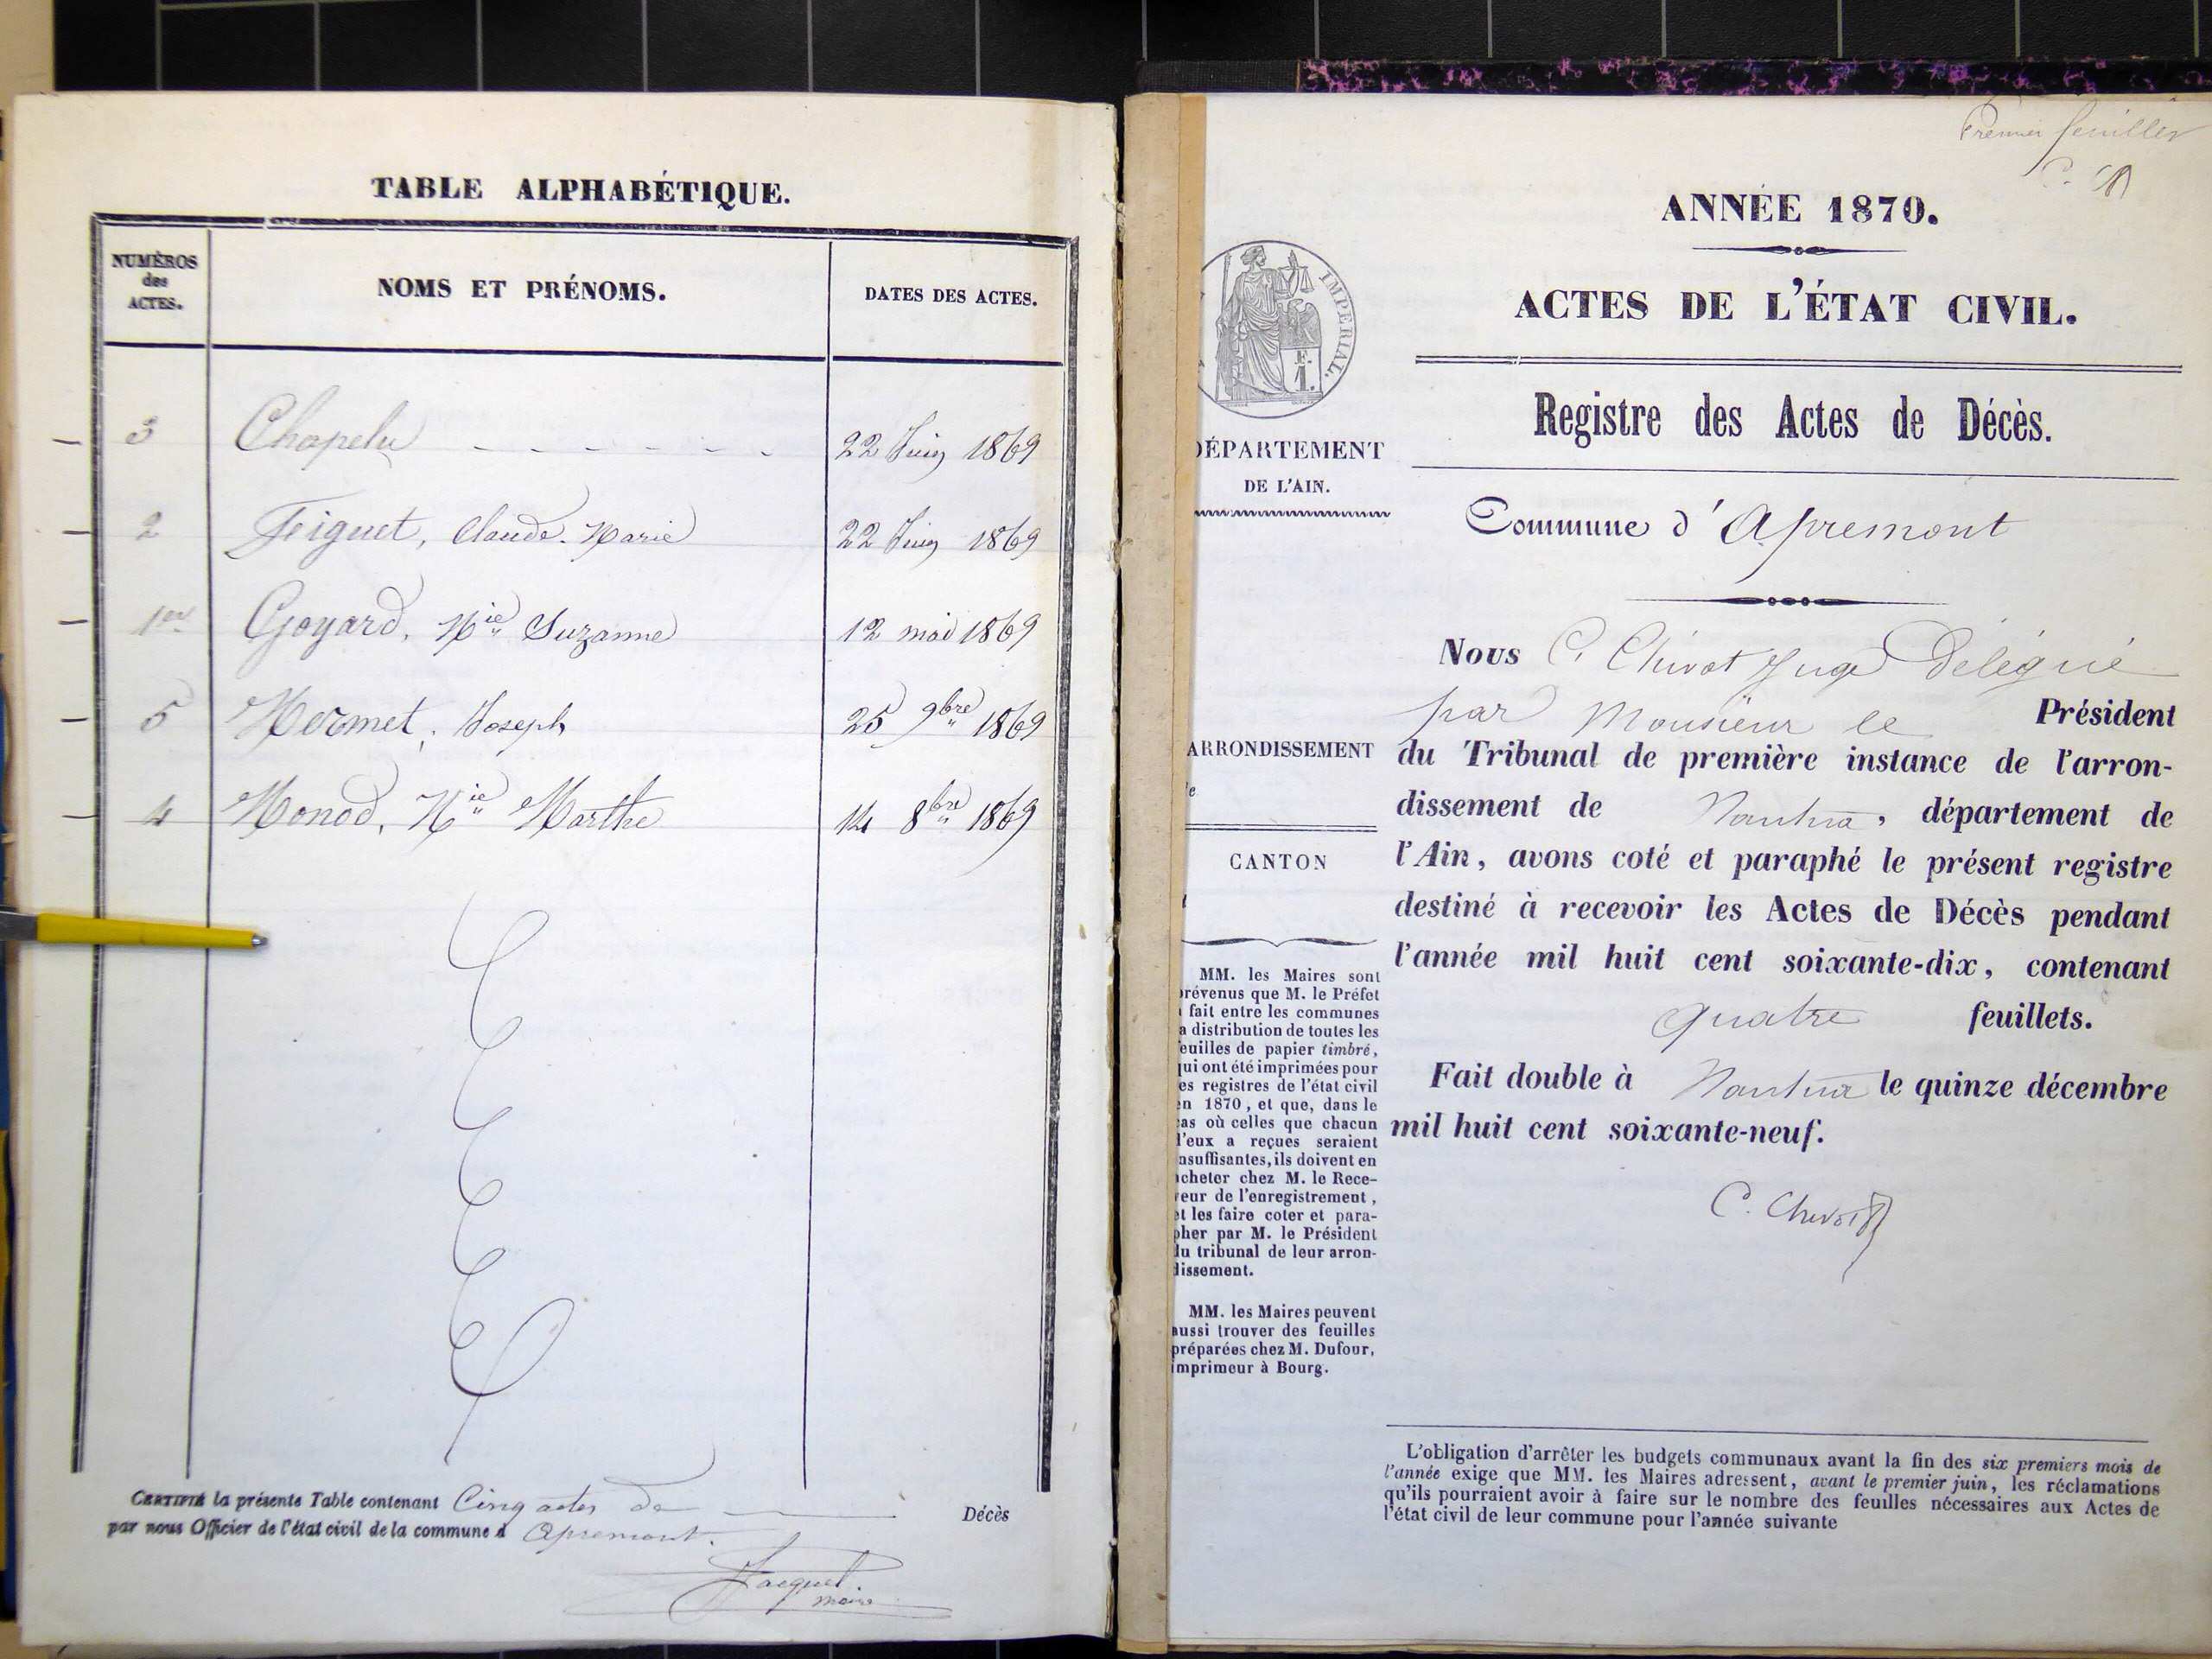 TABLE ALPHABÉTIQUE.
NUMÉROS
des
ACTES.
NOMS ET PRÉNOMS.
DATES DES ACTES.
3 Chapelu 22 Juin 1869
2 Figuet, Claude-Marie 22 Juin 1869
1er Goyard, Mie Suzanne 12 mai 1869
5 Mermet, Joseph 25 9bre 1869
4 Monod, Mie Marthe 14 8bre 1869
CERTIFIÉ la présente Table contenant Cinq actes de Décès
par nous Officier de l'état civil de la commune d Apremont.
Jacquet.
maire
Premier feuillet
ANNÉE 1870.
ACTES DE L'ÉTAT CIVIL.
IMPERIAL.
Registre des Actes de Décès.
DÉPARTEMENT
DE L'AIN.
Commune d'Apremont
Nous C. Chivot Juge Délégué
par Monsieur le Président
du Tribunal de première instance de l'arron-
dissement de Nantua, département de
l'Ain, avons coté et paraphé le présent registre
destiné à recevoir les Actes de Décès pendant
l'année mil huit cent soixante-dix, contenant
quatre feuillets.
Fait double à Nantua le quinze décembre
mil huit cent soixante-neuf.
C. Chivot
ARRONDISSEMENT
CANTON
MM. les Maires sont
prévenus que M. le Préfet
fait entre les communes
a distribution de toutes les
euilles de papier timbré,
qui ont été imprimées pour
es registres de l'état civil
en 1870, et que, dans le
cas où celles que chacun
d'eux a reçues seraient
nsuffisantes, ils doivent en
acheter chez M. le Rece-
veur de l'enregistrement,
et les faire coter et para-
pher par M. le Président
du tribunal de leur arron-
dissement.
MM. les Maires peuvent
aussi trouver des feuilles
préparées chez M. Dufour,
imprimeur à Bourg.
L'obligation d'arrêter les budgets communaux avant la fin des six premiers mois de
l'année exige que MM. les Maires adressent, avant le premier juin, les réclamations
qu'ils pourraient avoir à faire sur le nombre des feuilles nécessaires aux Actes de
l'état civil de leur commune pour l'année suivante